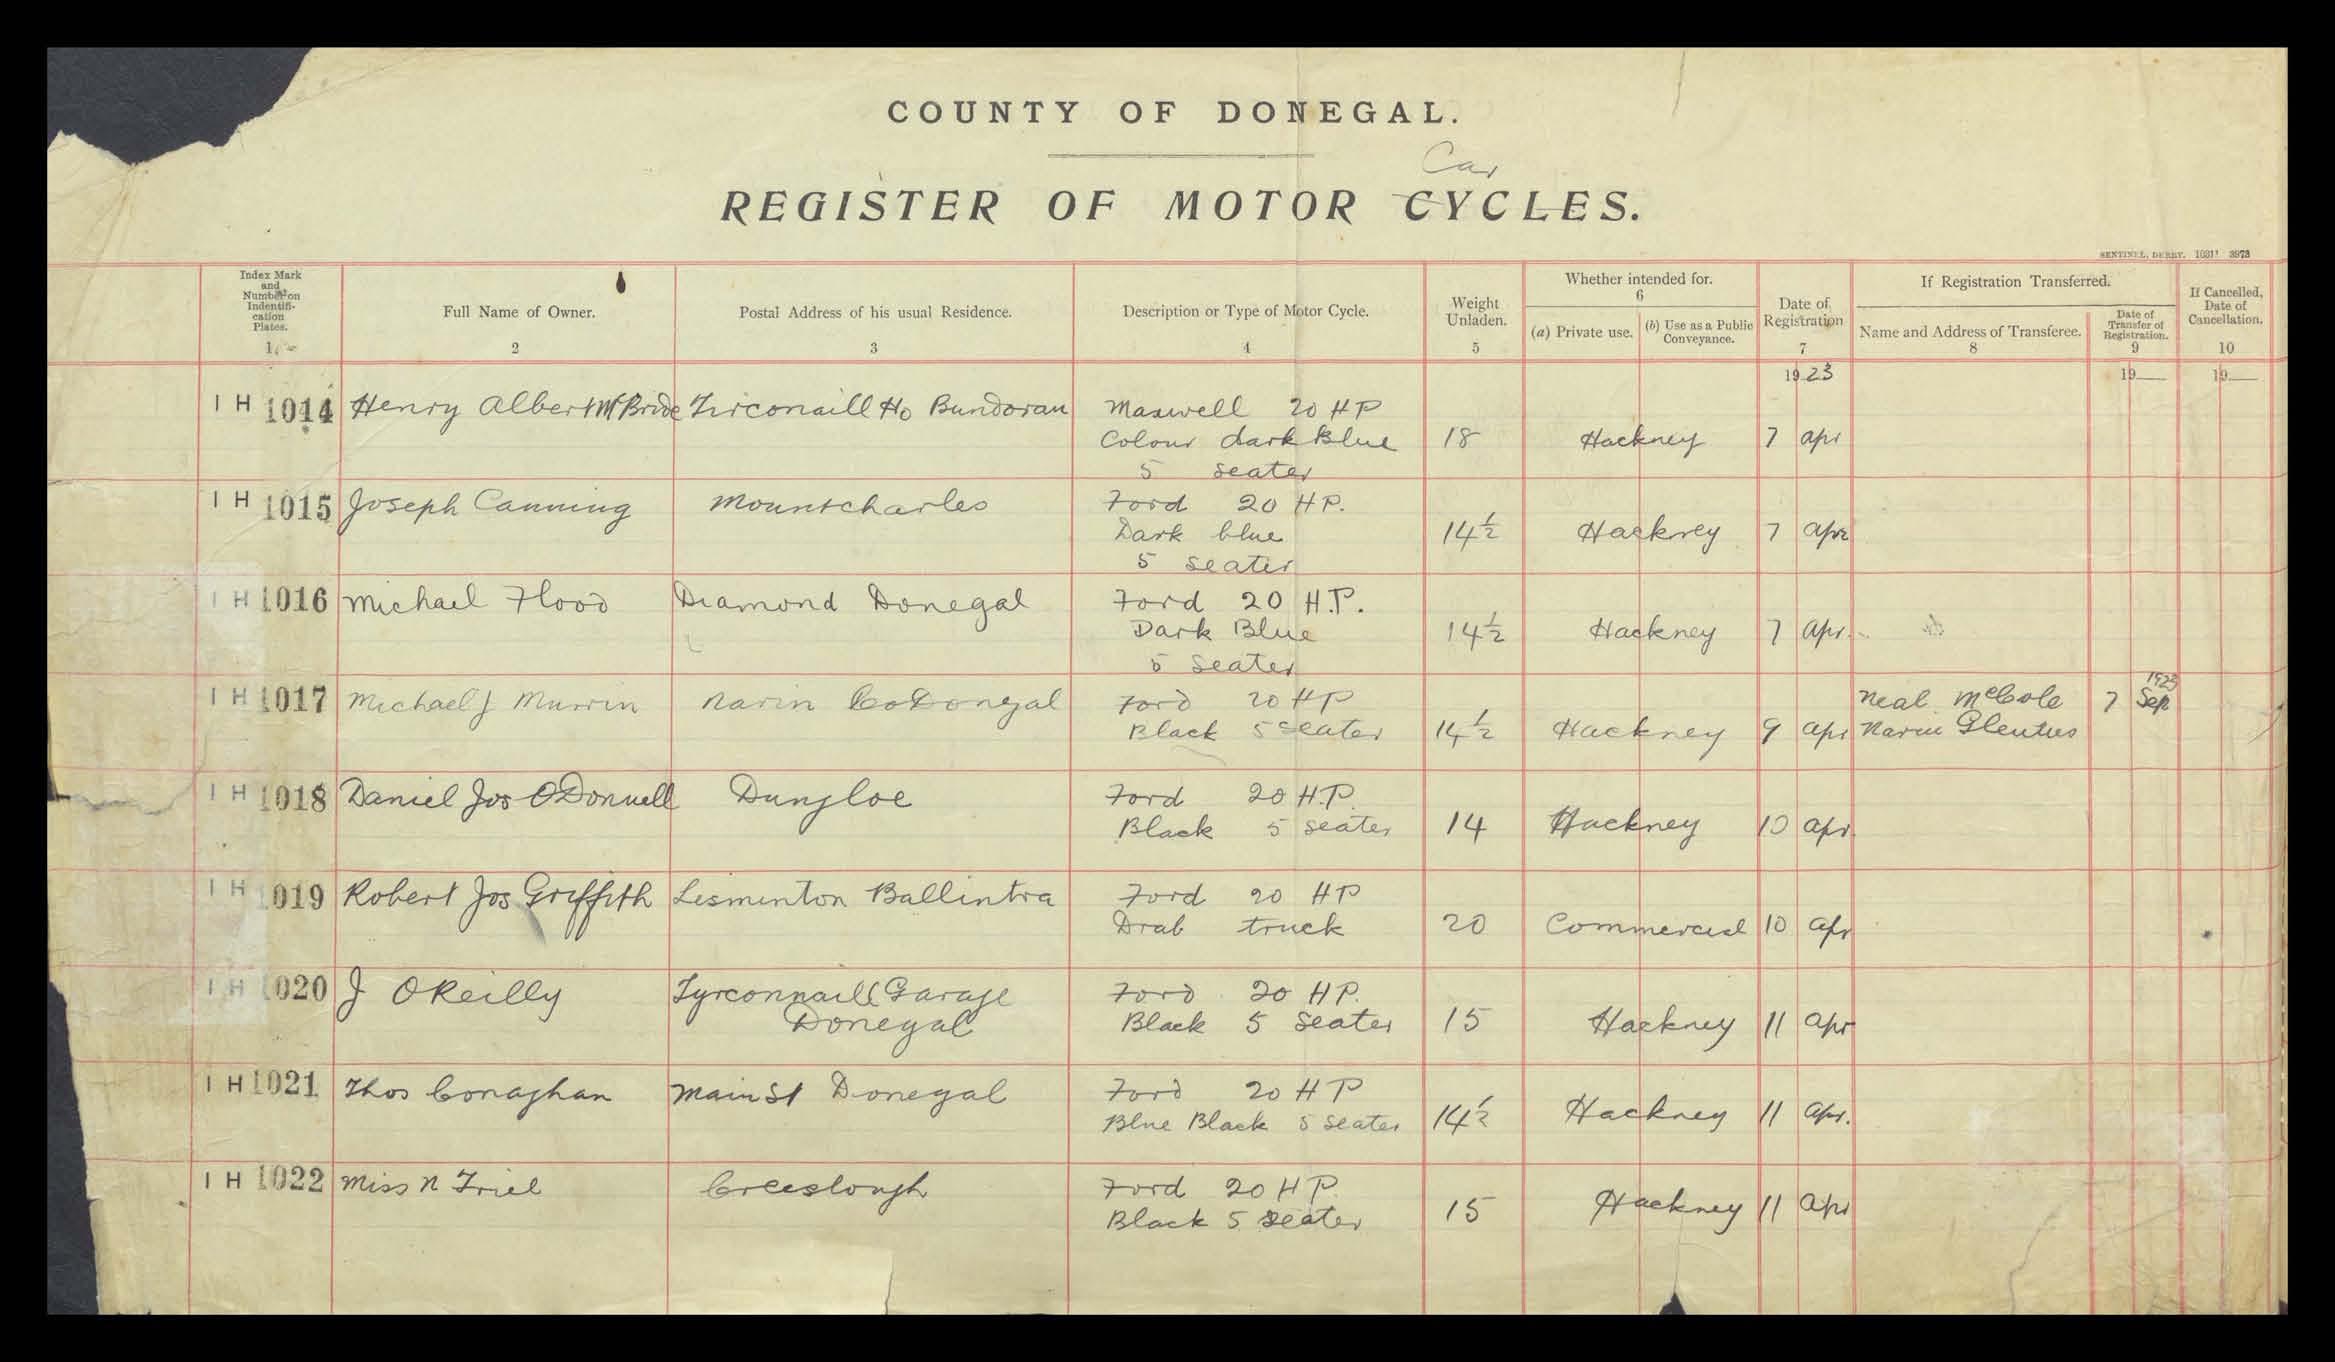 COUNTY OF DONEGAL.
Car
REGISTER OF MOTOR CYCLES.
SENTINEL, DERRY. 3973
Index Mark and Number on Indentifi-cation Plates. 1
Full Name of Owner. 2
Postal Address of his usual Residence. 3
Description or Type of Motor Cycle. 4
Weight Unladen. 5
Whether intended for. 6
(a) Private use.
(b) Use as a Public Conveyance.
Date of Registration 7
If Registration Transferred.
Name and Address of Transferee. 8
Date of Transfer of Registration. 9
If Cancelled, Date of Cancellation. 10
1923 19 19
IH 1014 Henry Albert McBride Tirconaill Ho Bundoran Maxwell 20 HP
Colour dark Blue 18 Hackney 7 apr
5 seater
IH 1015 Joseph Canning Mountcharles Ford 20 HP.
Dark blue 14½ Hackney 7 apr
5 seater
IH 1016 Michael Flood Diamond Donegal Ford 20 H.P.
Dark Blue 14½ Hackney 7 apr.
5 seater
IH 1017 Michael J Murrin Narin Co Donegal Ford 20 HP Neal McCole 7 Sep 1923
Black 5 seater 14½ Hackney 9 apr Narin Glenties
IH 1018 Daniel Jos O Donnell Dungloe Ford 20 H.P.
Black 5 seater 14 Hackney 10 apr
IH 1019 Robert Jos Griffith Lisminton Ballintra Ford 20 HP
Drab truck 20 Commercial 10 apr
IH 1020 J O Reilly Tyrconnaill Garage Ford 20 HP.
Donegal Black 5 seater 15 Hackney 11 apr
IH 1021 Thos Conaghan Main St Donegal Ford 20 HP
Blue Black 5 seater 14½ Hackney 11 apr.
IH 1022 Miss N Friel Creeslough Ford 20 HP
Black 5 seater 15 Hackney 11 apr